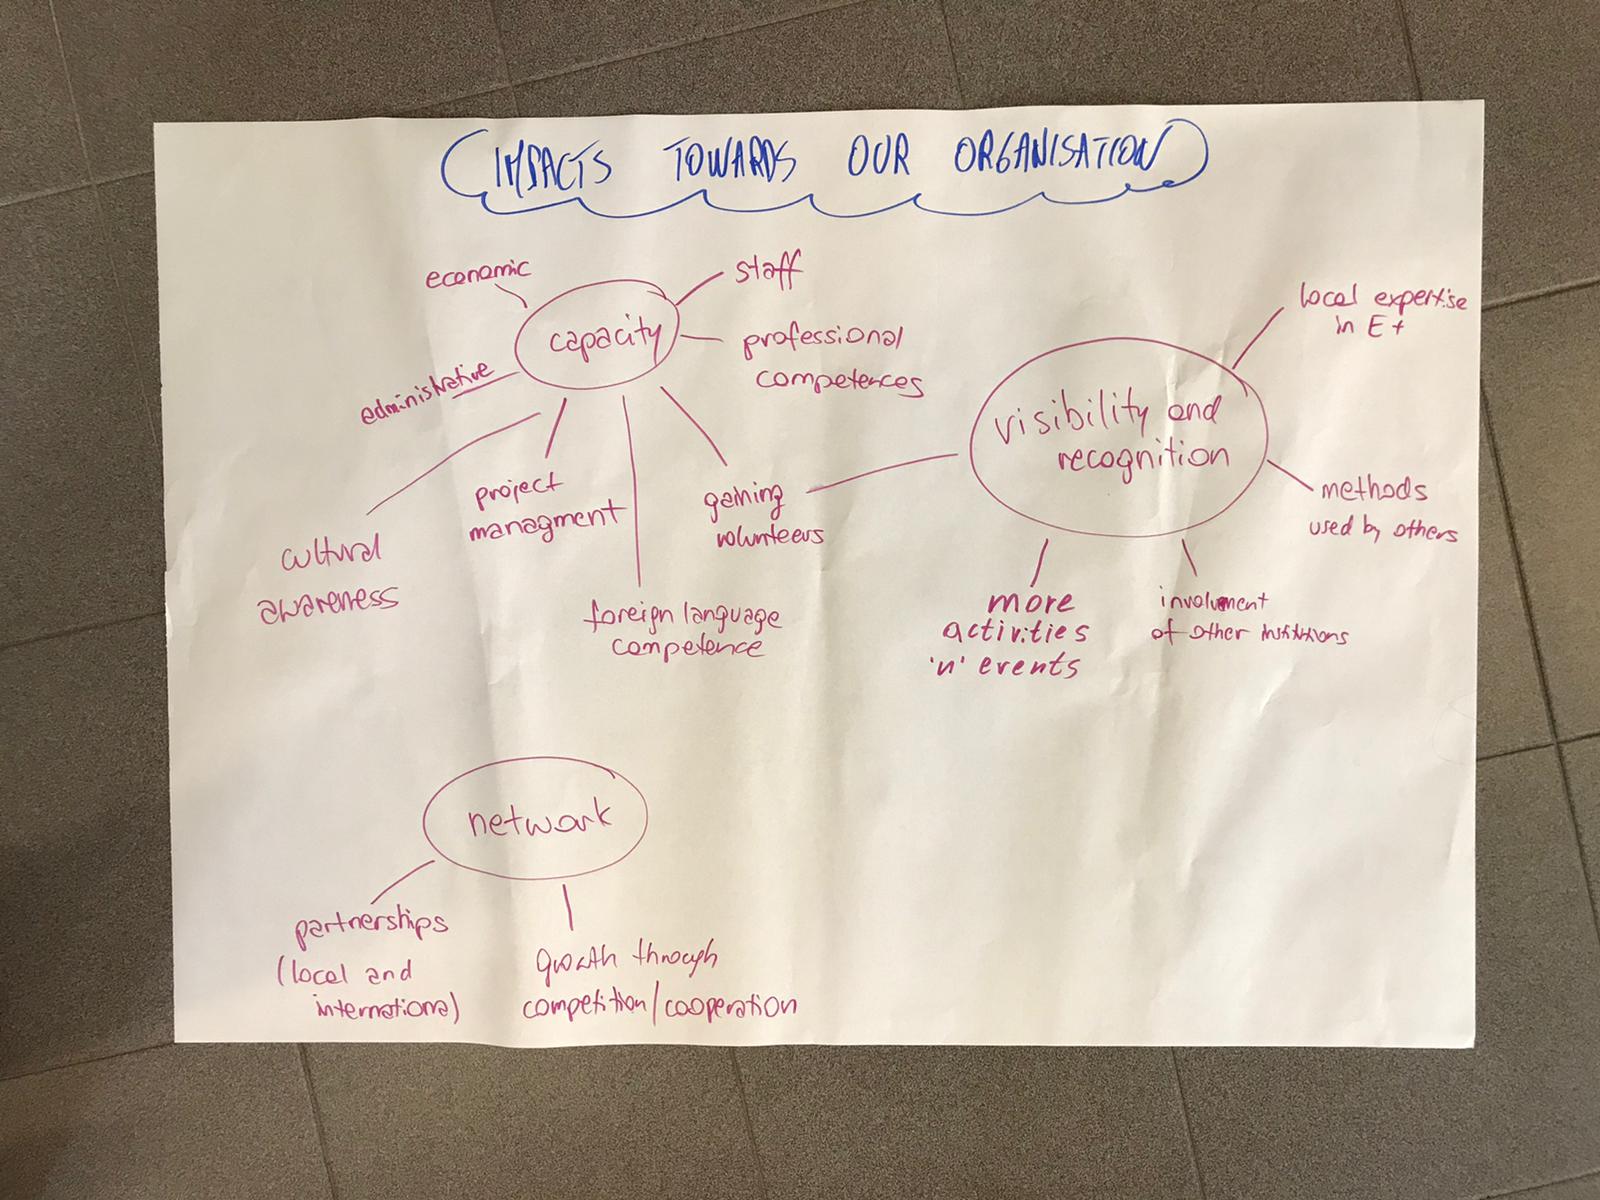 IMPACTS TOWARDS OUR ORGANISATION
economic
staff
capacity
professional
competences
administrative
project
managment
gaining
volunteers
cultural
awareness
foreign language
competence
local expertise
in E+
visibility and
recognition
methods
used by others
more
activities
'n' events
involvment
of other institutions
network
partnerships
(local and
international)
growth through
competition/cooperation